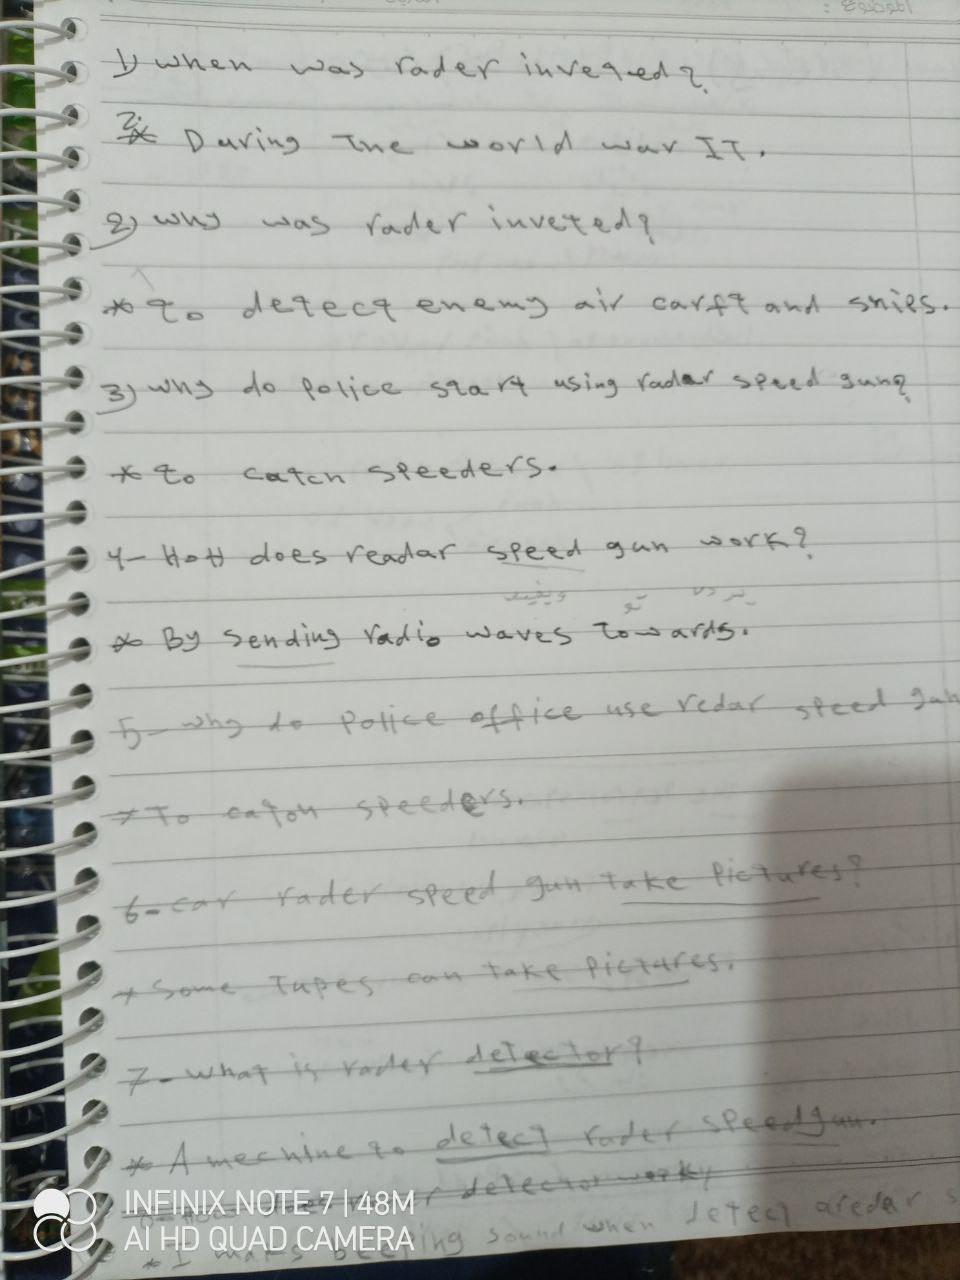 الموضوع :
1) when was rader inveted?
2. * During The world war II.
2) why was rader inveted?
* to detect enemy air carft and shies.
3) why do police start using radar speed gun?
* to catch speeders.
4- How does readar speed gun work?
* By sending radio waves towards.
5- why do police office use redar speed gun
* To catch speeders.
6- car rader speed gun take pictures?
* Some Tupes can take pictures.
7- what is rader detector?
* A mechine to detect rader speed gun.
detector work?
* I maks beeping sound when detect aredar s
INFINIX NOTE 7 | 48M
AI HD QUAD CAMERA